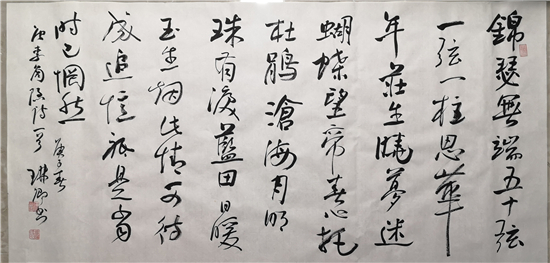 錦瑟無端五十弦
一弦一柱思華
年莊生曉夢迷
蝴蝶望帝春心托
杜鵑滄海月明
珠有淚藍田日暖
玉生烟此情可待
成追憶祇是當
时已惘然
唐李商隐诗一首
庚子春
书